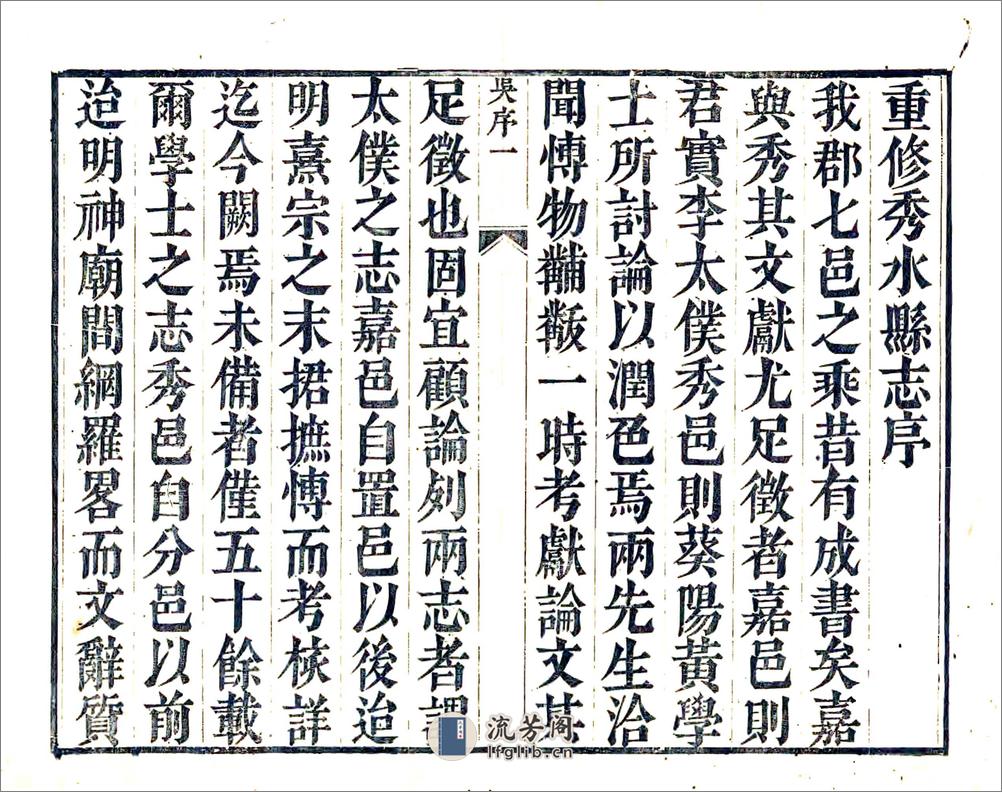 重修秀水縣志序
我郡七邑之乘昔有成書矣嘉
與秀其文獻尤足徵者嘉邑則
君實李太僕秀邑則葵陽黃學
士所討論以潤色焉兩先生洽
聞愽物黼黻一時考獻論文其
吳序一
足徵也固宜顧論列兩志者謂
太僕之志嘉邑自置邑以後迨
明熹宗之末捃摭愽而考核詳
迄今闕焉未備者僅五十餘載
爾學士之志秀邑自分邑以前
迨明神廟間網羅畧而文辭質
流芳阁
lfglib.cn